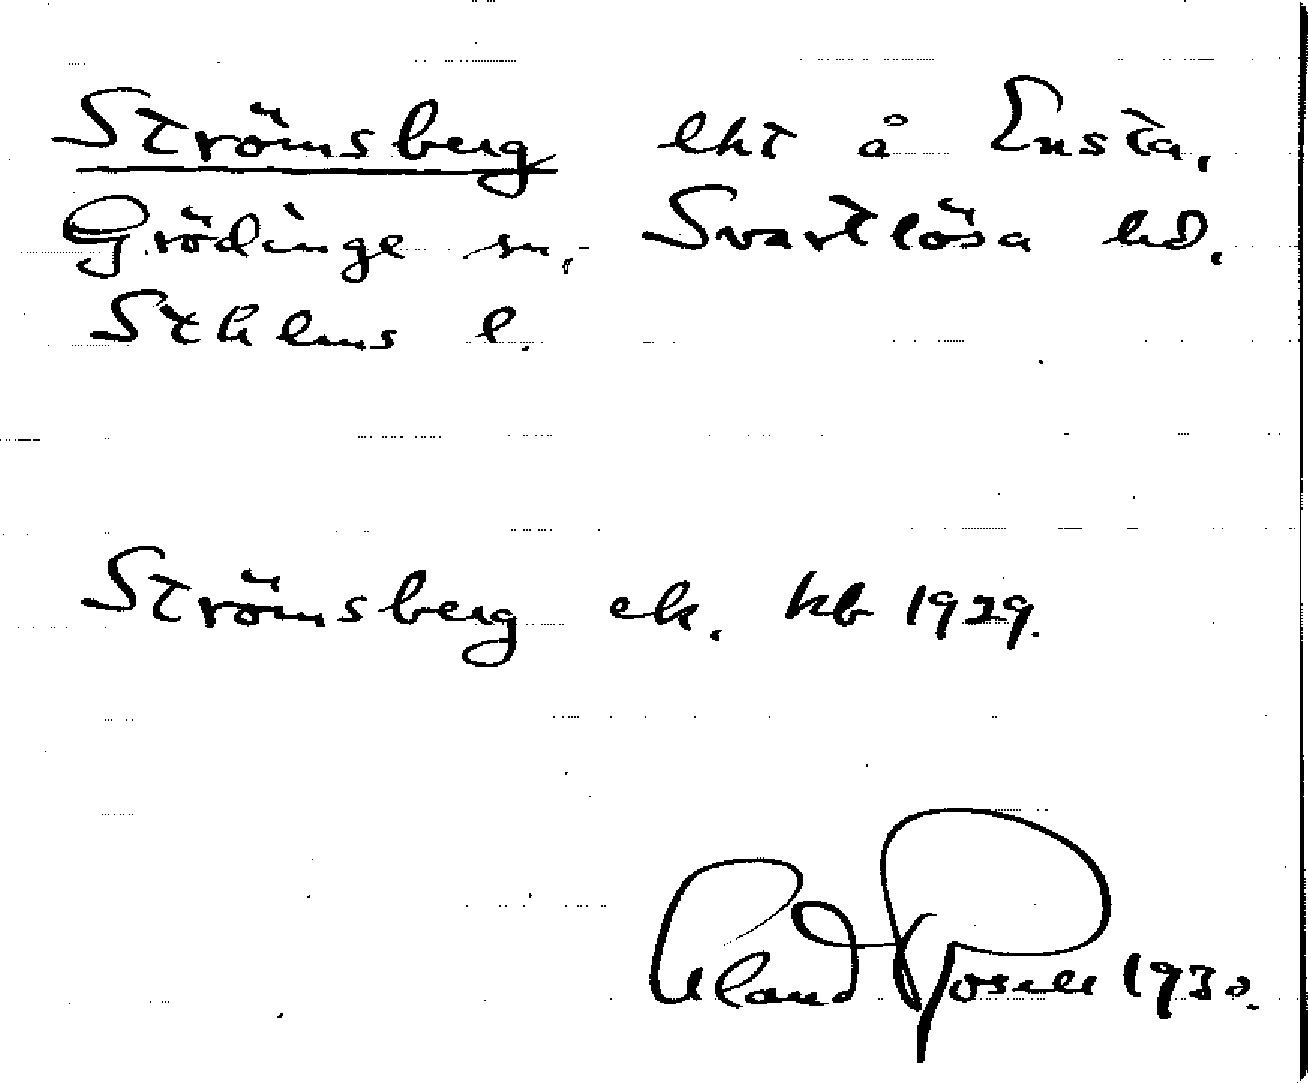 Strömsberg lht å Ensta,
Grödinge sn, Svartlösa hd,
Sthlms l.
Strömsberg ek. kb 1929.
Erland Rosell 1930.